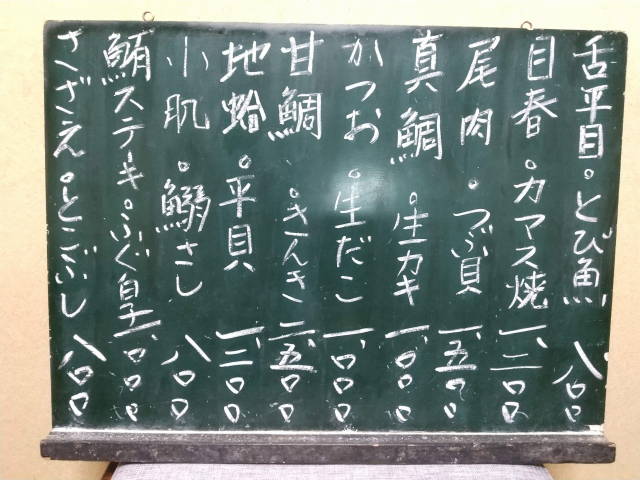 舌平目。とび魚 八〇〇
目春。カマス焼 一、二〇〇
尾肉。つぶ貝 一、五〇〇
真鯛。生カキ 一、〇〇〇
かつお。生だこ 一、〇〇〇
甘鯛。きんき 二、五〇〇
地蛤。平貝 一、三〇〇
小肌。鰯さし 八〇〇
鮪ステーキ。ふぐ白子 一、〇〇〇
さざえ。とこぶし 八〇〇